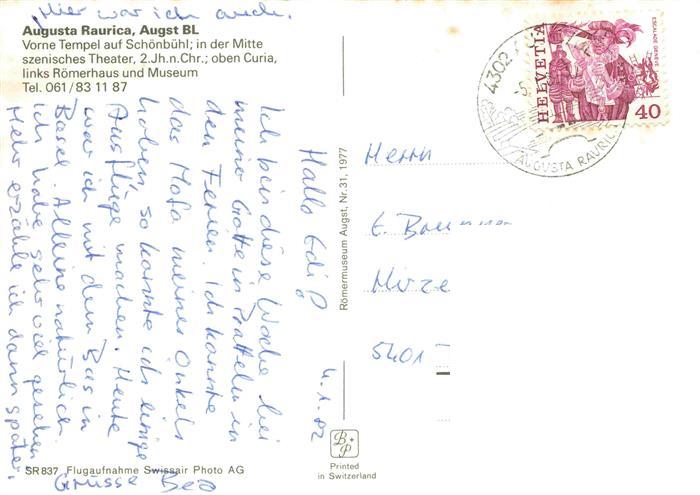 Hier war ich auch.
Augusta Raurica, Augst BL
Vorne Tempel auf Schönbühl; in der Mitte
szenisches Theater, 2.Jh.n.Chr.; oben Curia,
links Römerhaus und Museum
Tel. 061/83 11 87
Hallo Edi!
4.1.82
Ich bin diese Woche bei
meiner Gotte in Pratteln in
den Ferien. Ich konnte
das Mofa meines Onkels
haben, so konnte ich einige
Ausflüge machen. Heute
war ich mit dem Bus in
Basel. Alleine natürlich.
Ich habe sehr viel gesehen.
Mehr erzähle ich dann später.
Grüsse Bea
SR 837 Flugaufnahme Swissair Photo AG
Römermuseum Augst, Nr.31, 1977
B+P
Printed
in Switzerland
HELVETIA
ESCALADE GENÈVE
40
4302
AUGUSTA RAURIC
Herrn
E.
5401